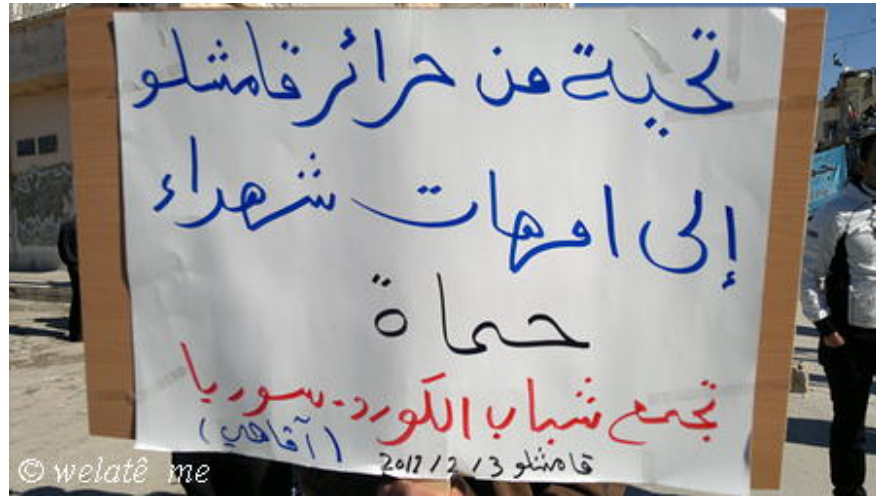 تحية من حرائر قامشلو
إلى امهات شهداء
حماة
تجمع شباب الكورد - سوريا
(آفاهي)
قامشلو 3 / 2 / 2012
© welatê me